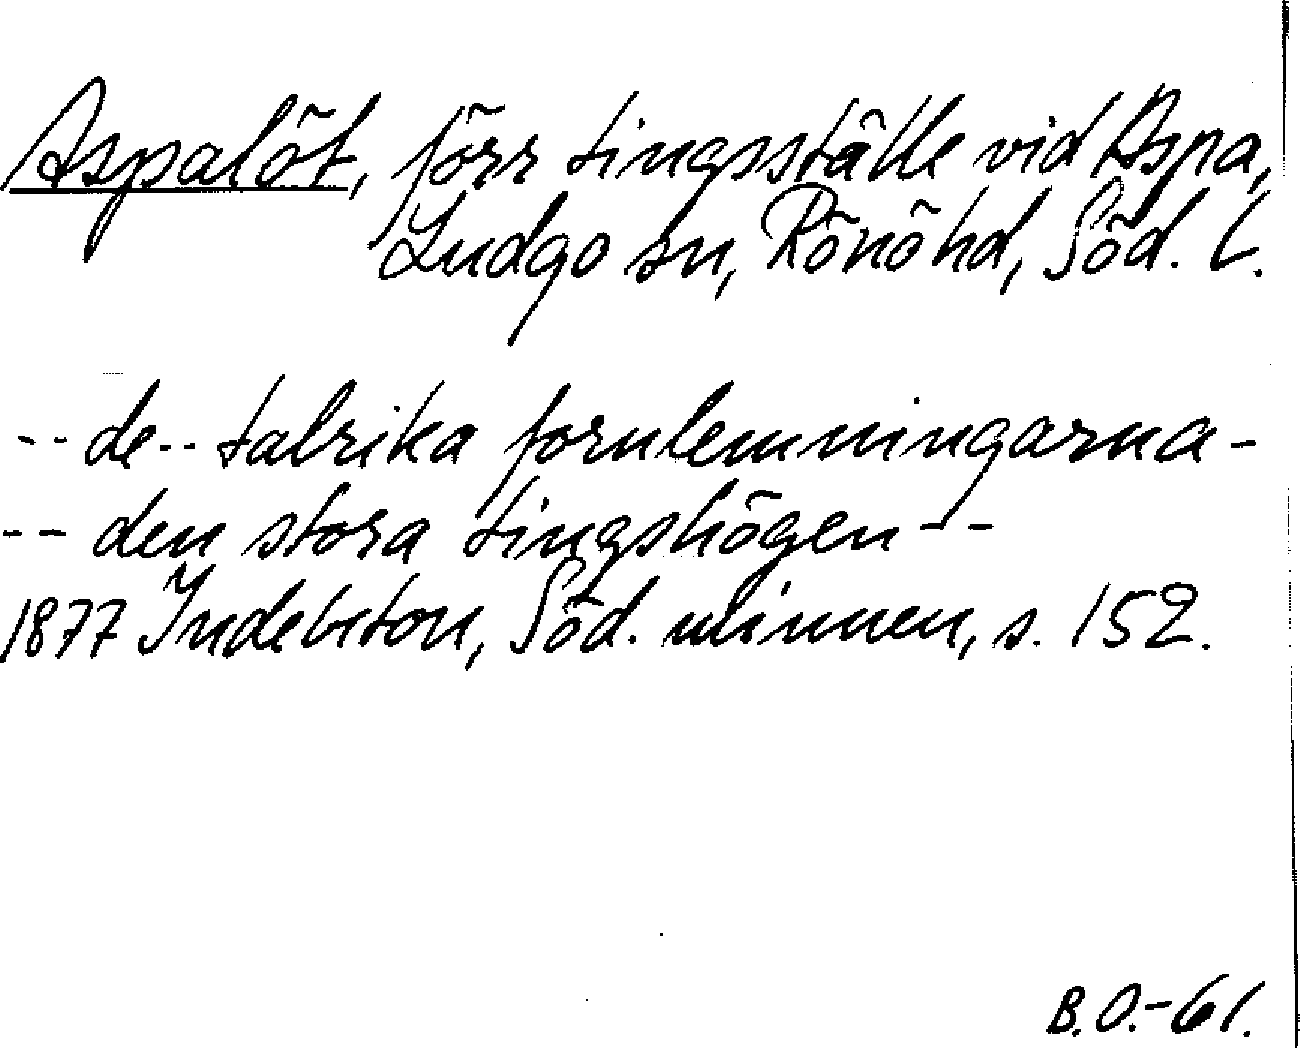 Aspalöt, förr tingsställe vid Aspa,
Ludgo sn, Rönö hd, Söd. l.
-- de -- talrika fornlemningarna -
-- den stora tingshögen --
1877 Indebetou, Söd. minnen, s. 152.
B.O.-61.